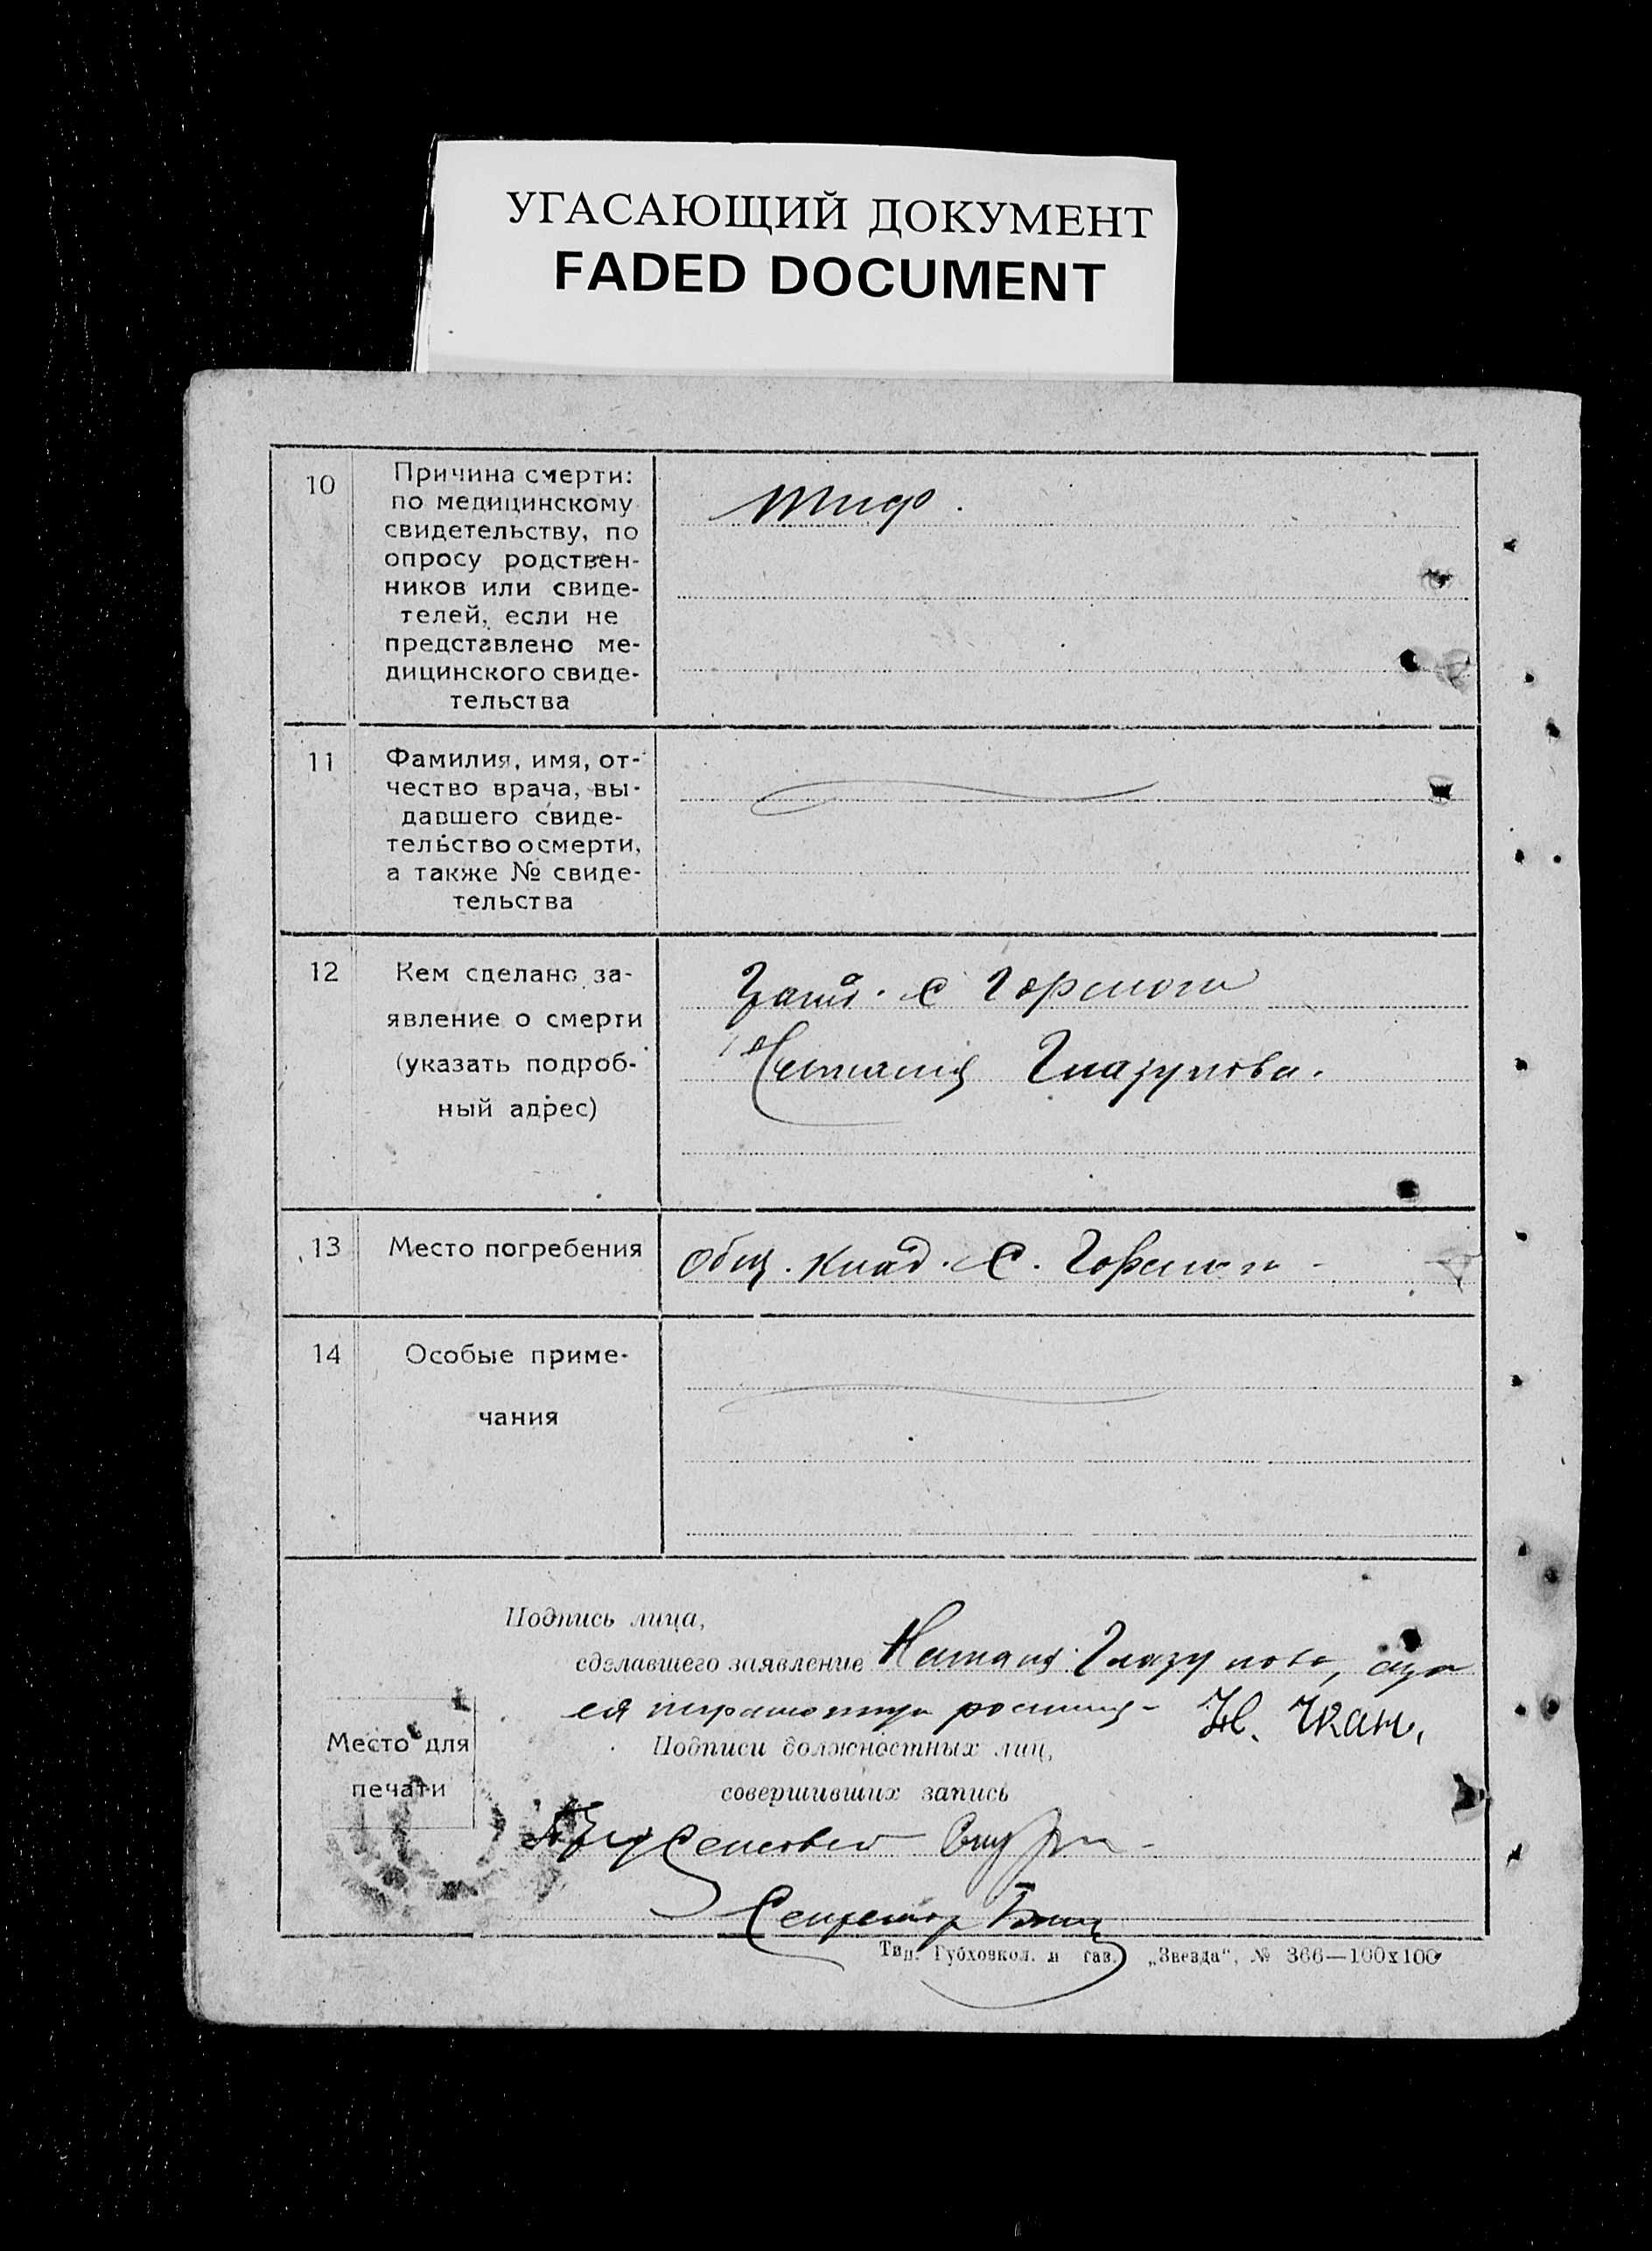 УГАСАЮЩИЙ ДОКУМЕНТ
FADED DOCUMENT
10
Причина смерти:
по медицинскому
свидетельству, по
опросу родствен-
ников или свиде-
телей, если не
представлено ме-
дицинского свиде-
тельства
тиф.
11
Фамилия, имя, от-
чество врача, вы-
давшего свиде-
тельство о смерти,
а также № свиде-
тельства
12
Кем сделано за-
явление о смерти
(указать подроб-
ный адрес)
Граж. с Горского
Наталия Глазунова.
13
Место погребения
Общ. клад. С. Горског
14
Особые приме-
чания
Подпись лица,
сделавшего заявление Наталия Глазунова, а за
ея неграмотную
Место для
печати
Подписи должностных лиц,
совершивших запись
Секретар
Тип. Губховкол. и газ. „Звезда“, № 366—100х100